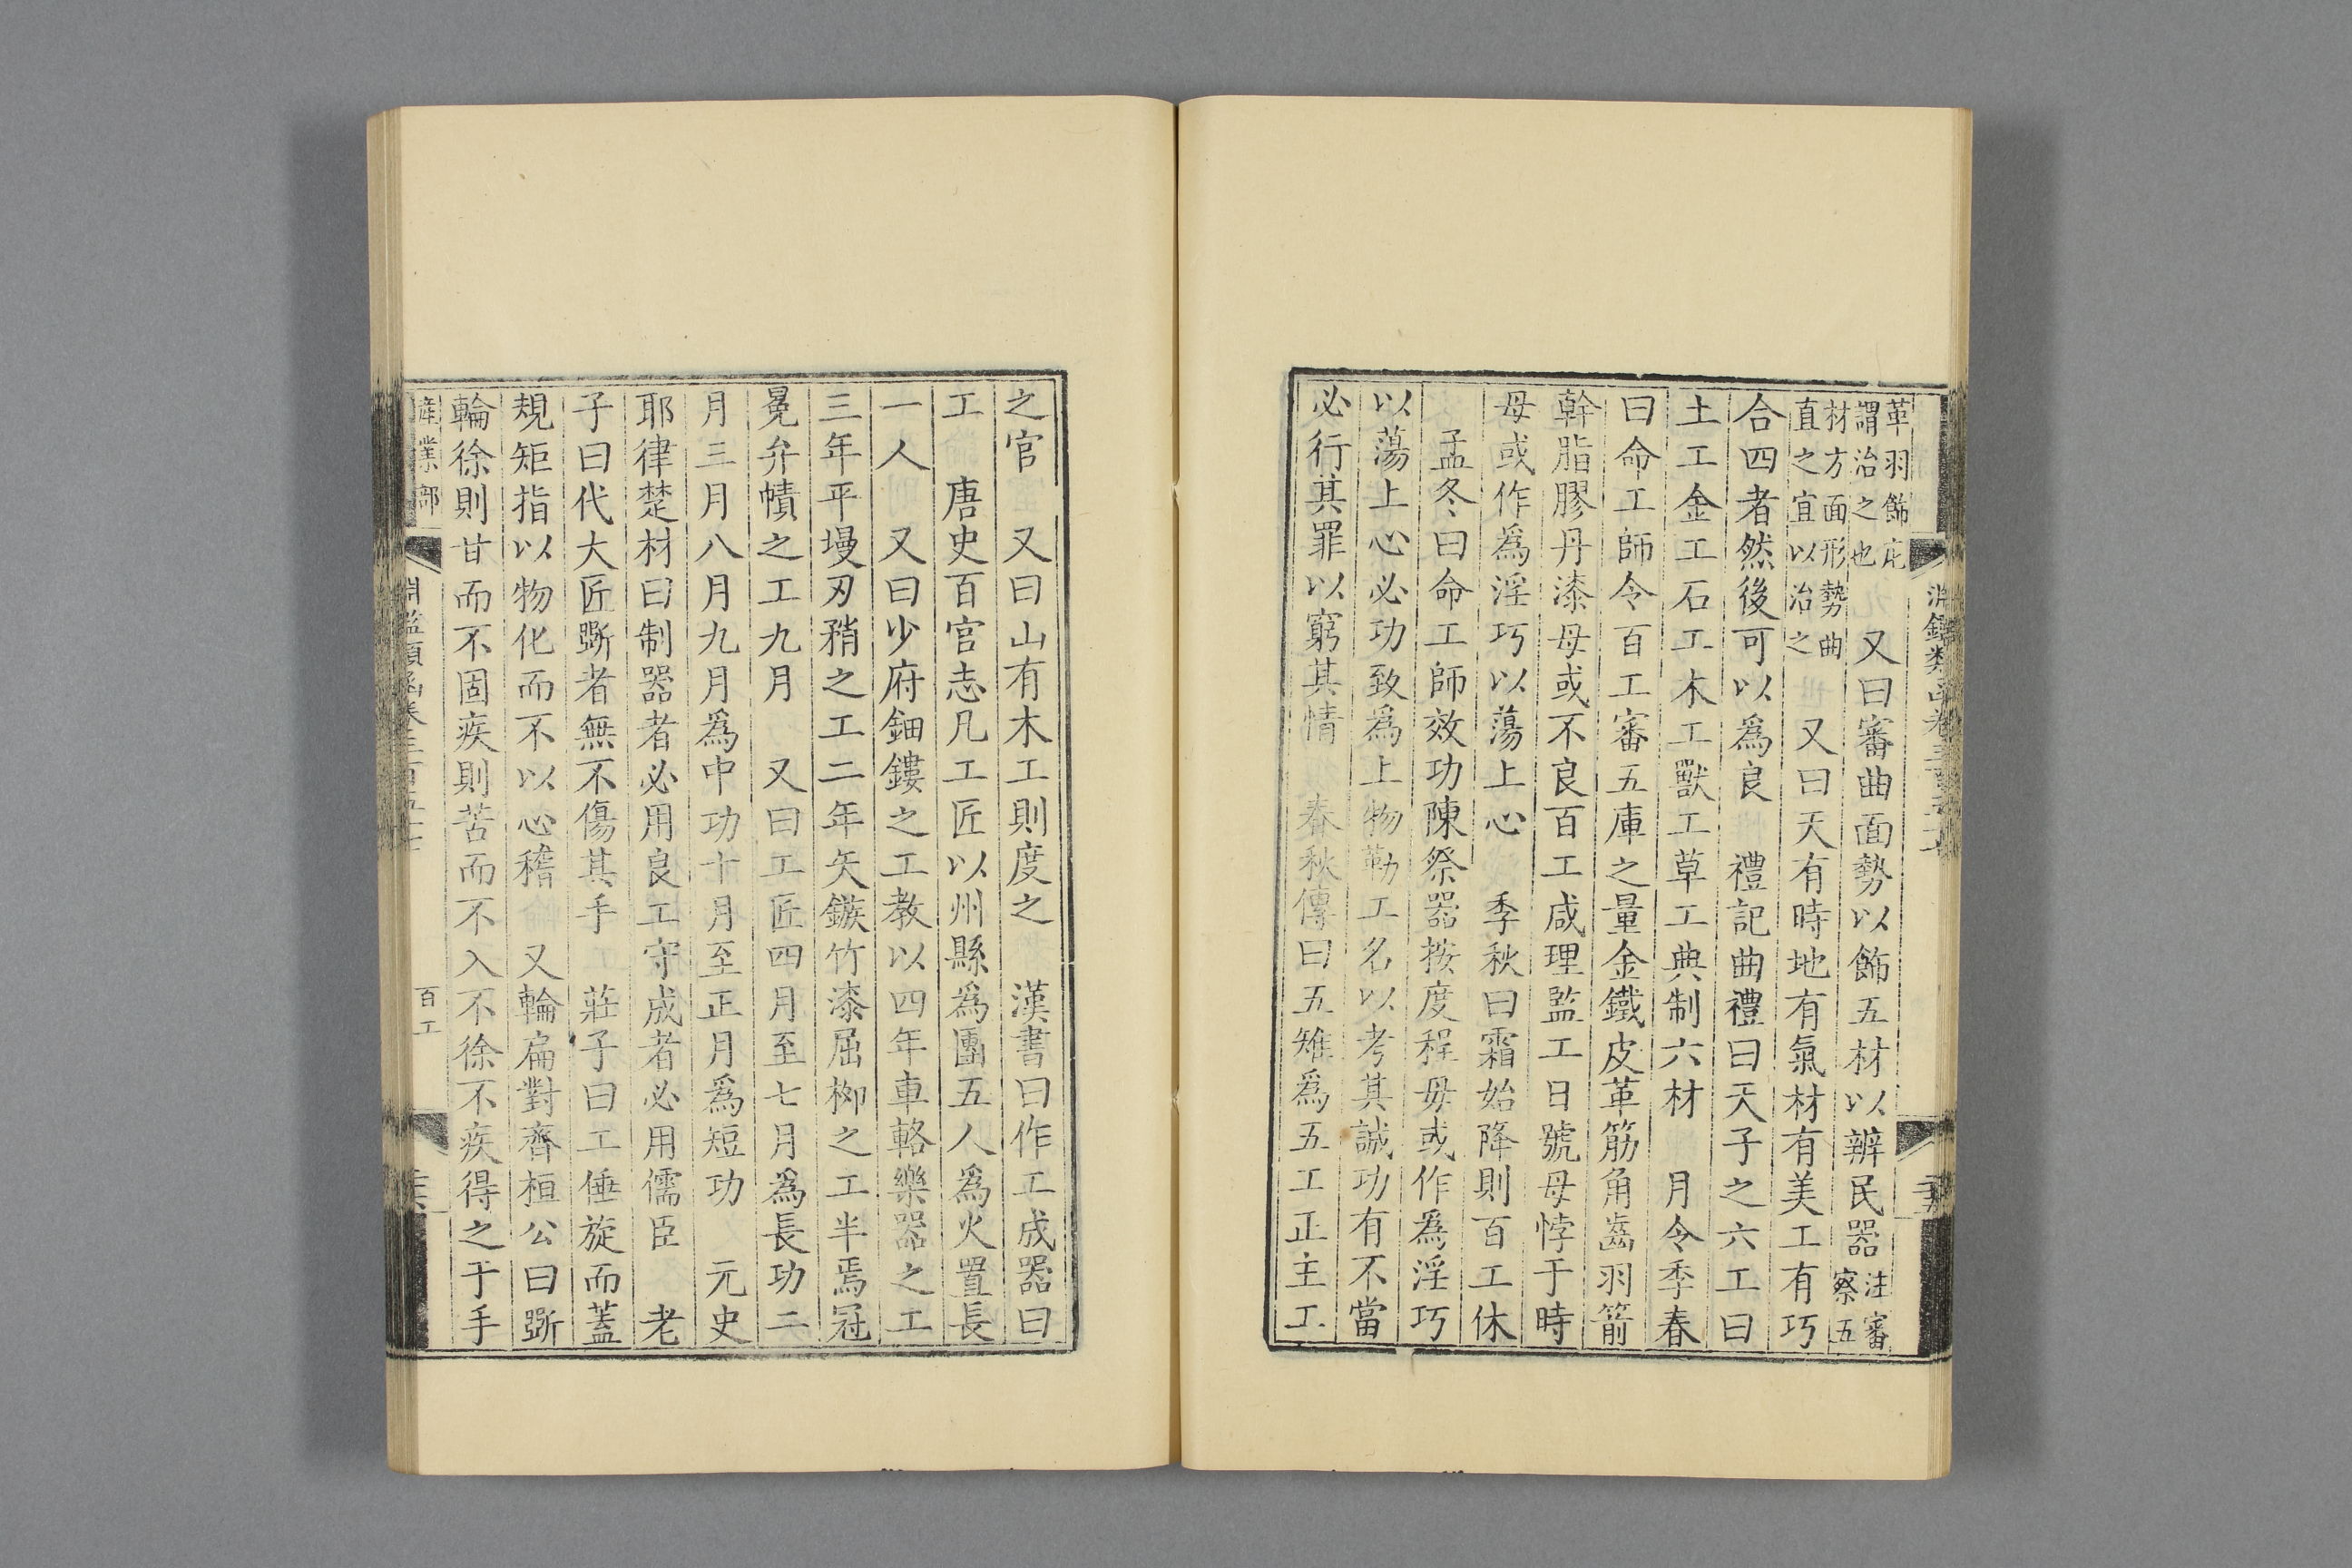 革羽飾庀謂治之也 又曰審曲面勢以飾五材以辨民器注審察五
材方面形勢曲直之宜以治之 又曰天有時地有氣材有美工有巧
合四者然後可以爲良 禮記曲禮曰天子之六工曰
土工金工石工木工獸工草工典制六材 月令季春
曰命工師令百工審五庫之量金鐵皮革筋角齒羽箭
幹脂膠丹漆母或不良百工咸理監工日號母悖于時
母或作爲淫巧以蕩上心 季秋曰霜始降則百工休
孟冬曰命工師效功陳祭器按度程毋或作爲淫巧
以蕩上心必功致爲上物勒工名以考其誠功有不當
必行其罪以窮其情 春秋傳曰五雉爲五工正主工
之官 又曰山有木工則度之 漢書曰作工成器曰
工 唐史百官志凡工匠以州縣爲團五人爲火置長
一人 又曰少府鈿鏤之工教以四年車輅樂器之工
三年平墁刃矟之工二年矢鏃竹漆屈柳之工半焉冠
冕弁幘之工九月 又曰工匠四月至七月爲長功二
月三月八月九月爲中功十月至正月爲短功 元史
耶律楚材曰制器者必用良工守成者必用儒臣 老
子曰代大匠斲者無不傷其手 莊子曰工倕旋而蓋
規矩指以物化而不以心稽 又輪扁對齊桓公曰斲
輪徐則甘而不固疾則苦而不入不徐不疾得之于手
產業部 淵鑑類函卷三百五十七 百工